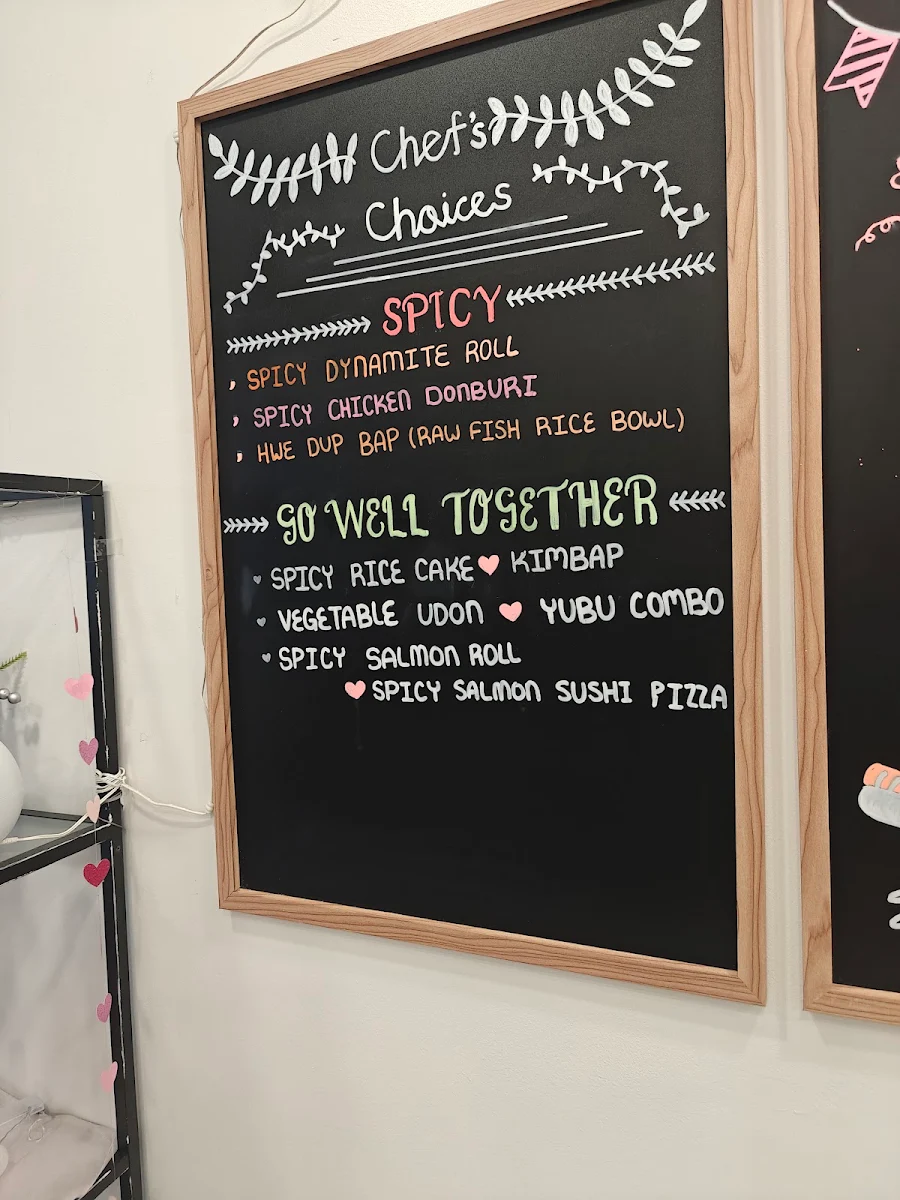 Chef's
Choices
SPICY
, SPICY DYNAMITE ROLL
, SPICY CHICKEN DONBURI
, HWE DUP BAP (RAW FISH RICE BOWL)
GO WELL TOGETHER
♥ SPICY RICE CAKE ♥ KIMBAP
♥ VEGETABLE UDON ♥ YUBU COMBO
♥ SPICY SALMON ROLL
♥ SPICY SALMON SUSHI PIZZA